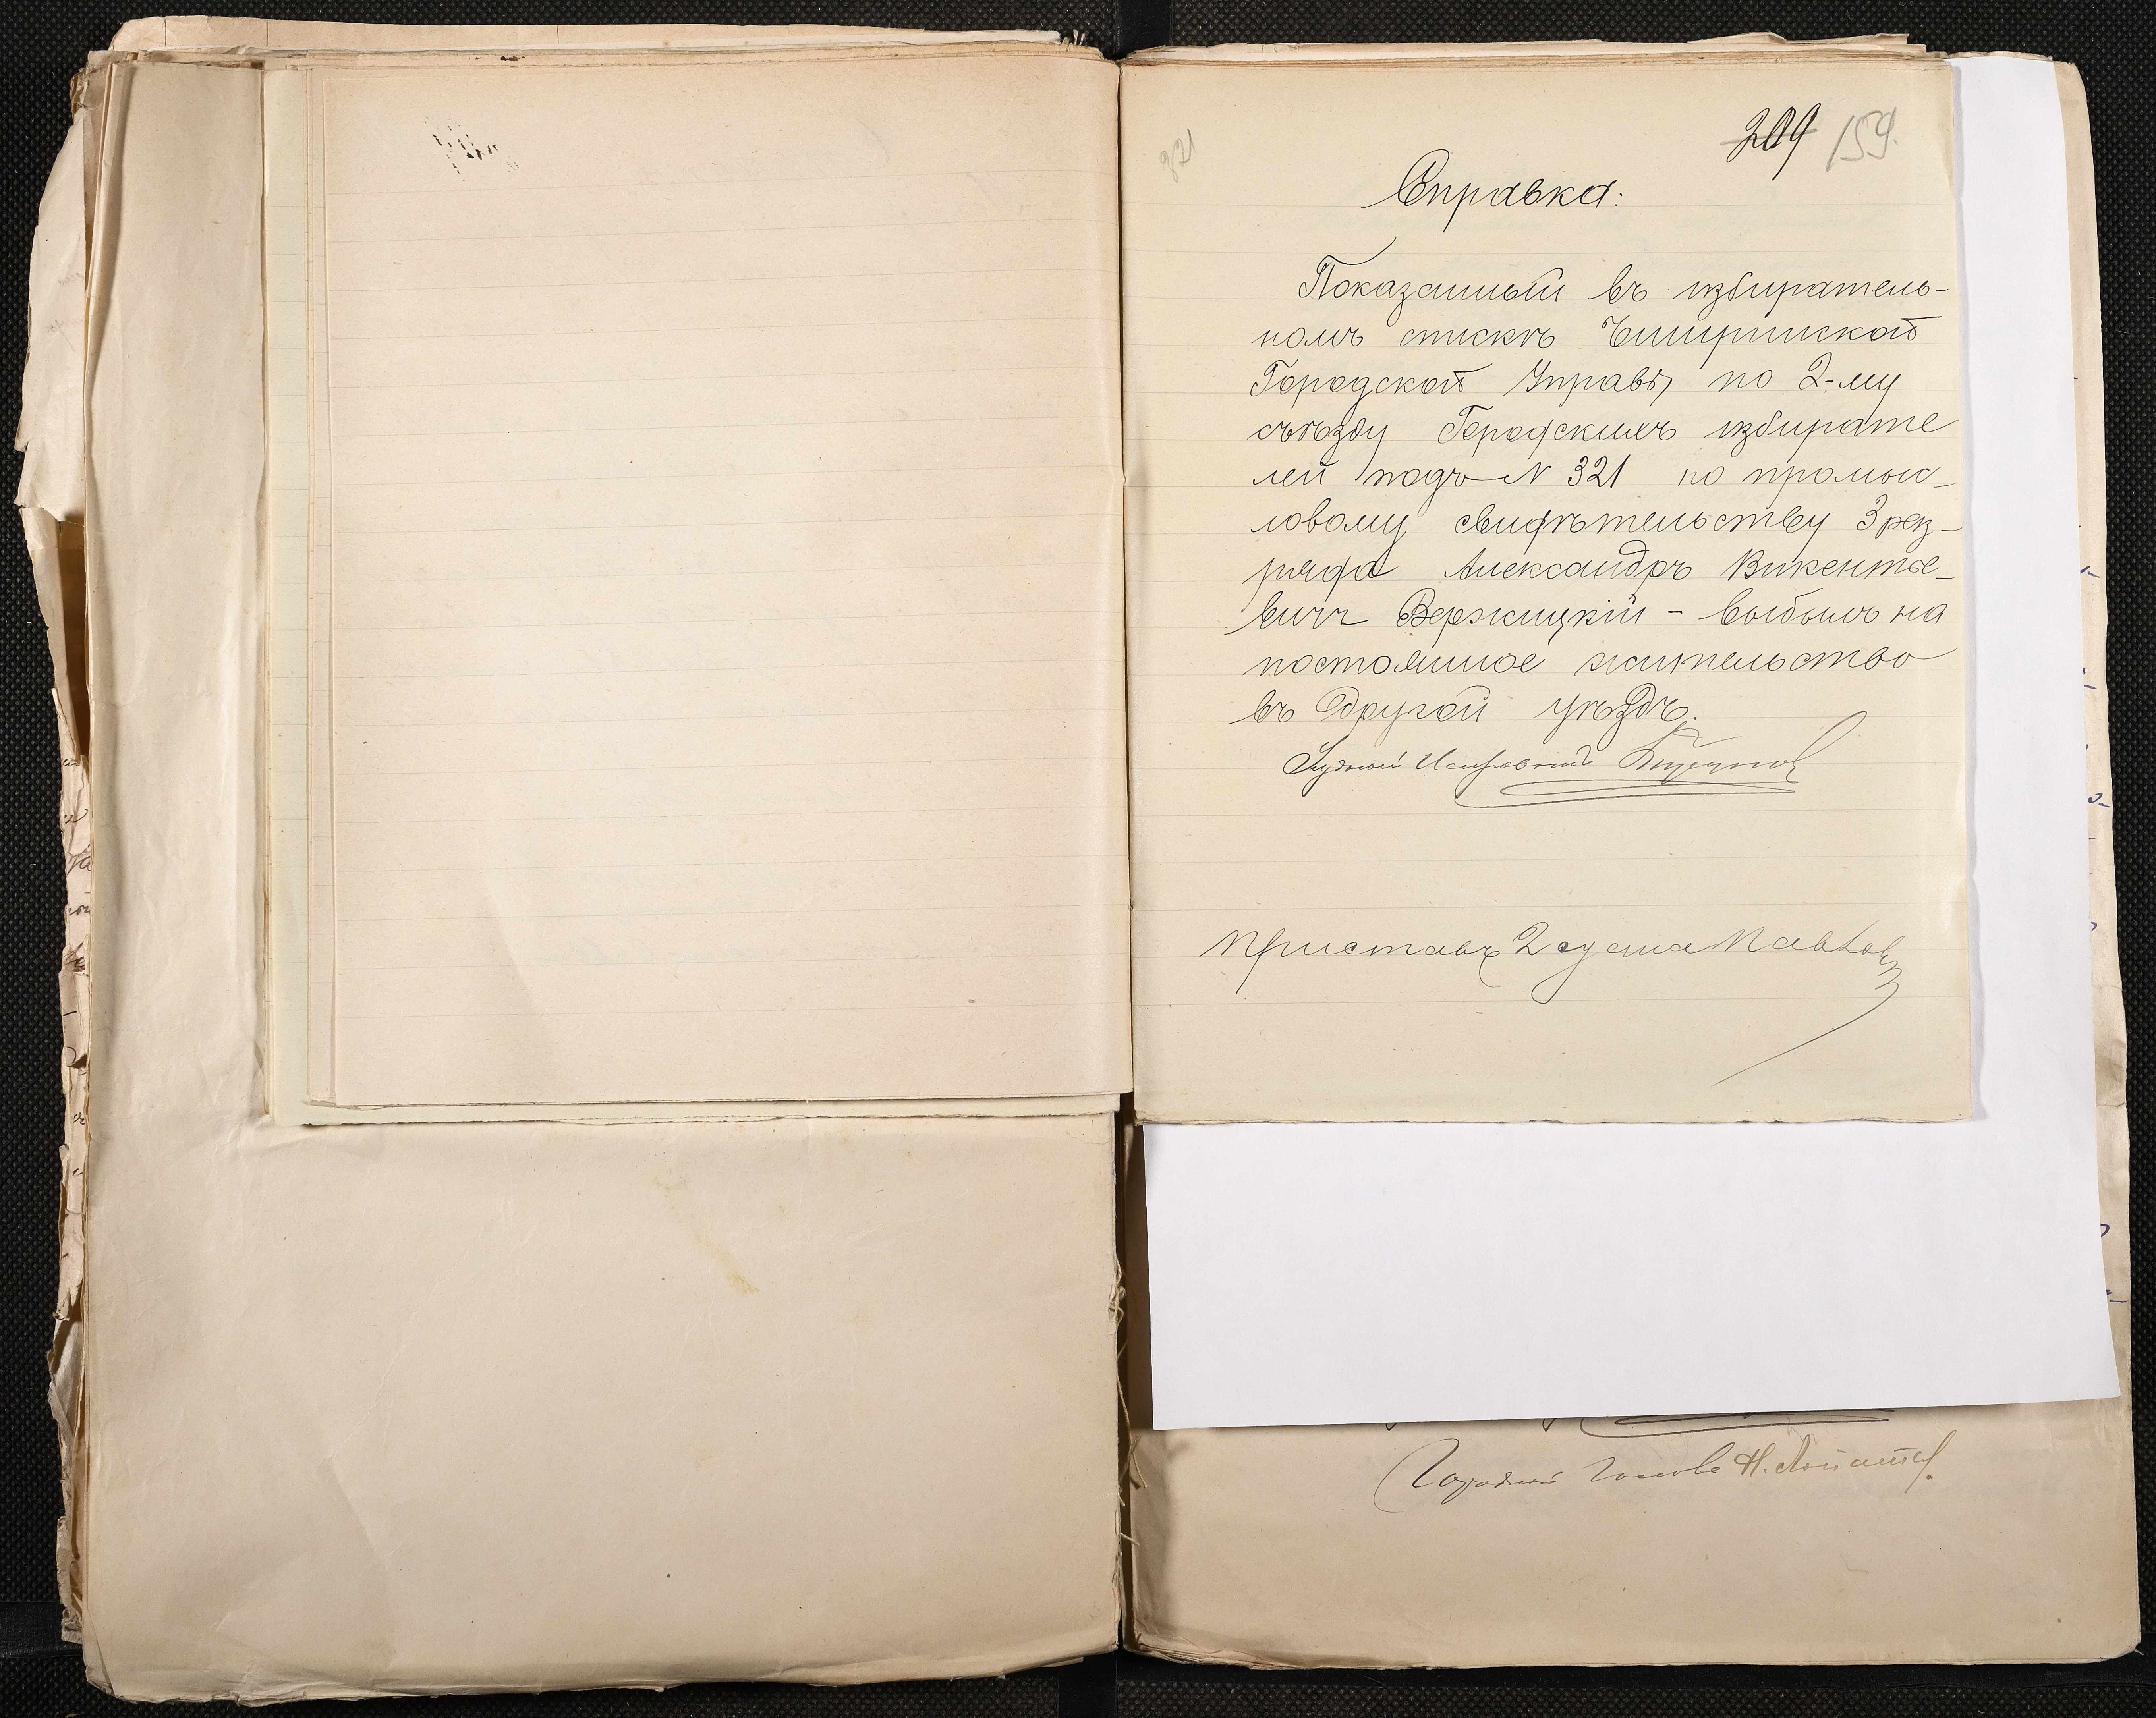 321
209 159.
Справка:
Показанный въ избиратель-
номъ списке Чигиринской
Городской Управы по 2-му
съѣзду Городскихъ избирате
лей подъ N 321 по промыс-
ловому свидѣтельству 3 раз-
ряда Александръ Викентье-
вичъ Вержицкій - выбылъ на
постоянное жительство
въ другой уѣздъ.
Уѣздный Исправникъ
Приставъ 2 стана Павлов
Городской Голова Н.